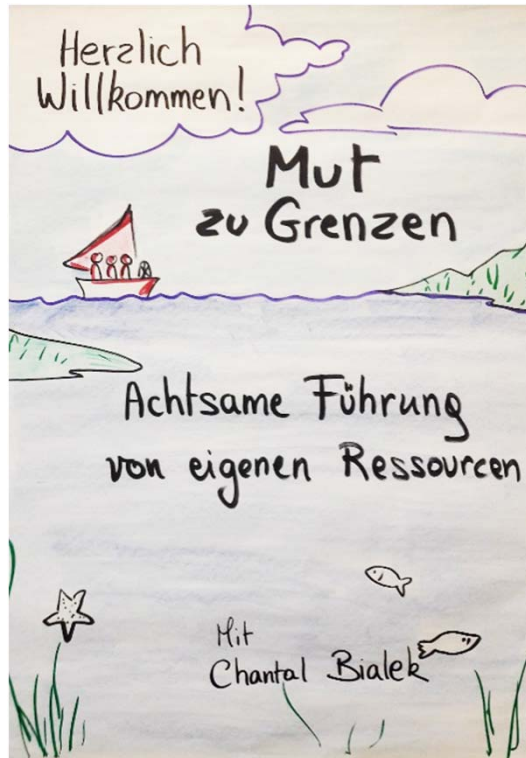 Herzlich
Willkommen!
Mut
zu Grenzen
Achtsame Führung
von eigenen Ressourcen
Mit
Chantal Bialek